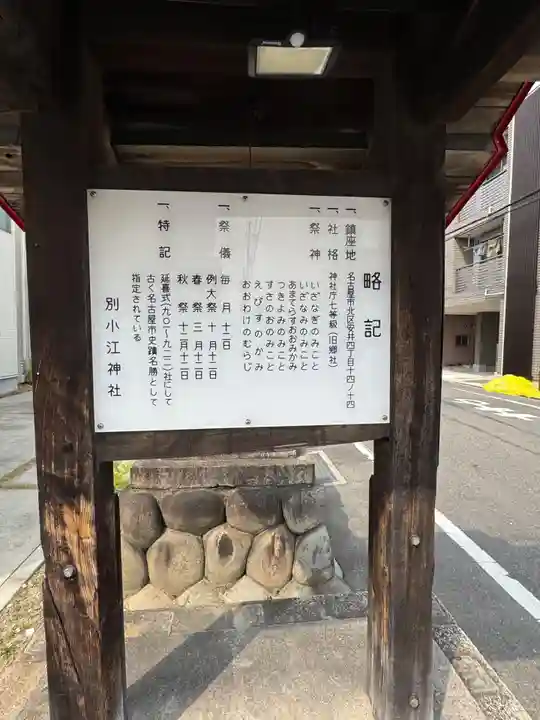 略記
一、鎮座地 名古屋市北区安井四丁目十四ノ十四
一、社格 神社庁七等級（旧郷社）
一、祭神 いざなぎのみこと
いざなみのみこと
あまてらすおおみかみ
つきよみのみこと
すさのおのみこと
えびすのかみ
おおわけのむらじ
一、祭儀 毎月 十二日
例大祭 十月十二日
春祭 三月十二日
秋祭 十二月十二日
一、特記 延喜式（九〇一～九二二）社にして
古く名古屋市史蹟名勝として
指定されている
別小江神社